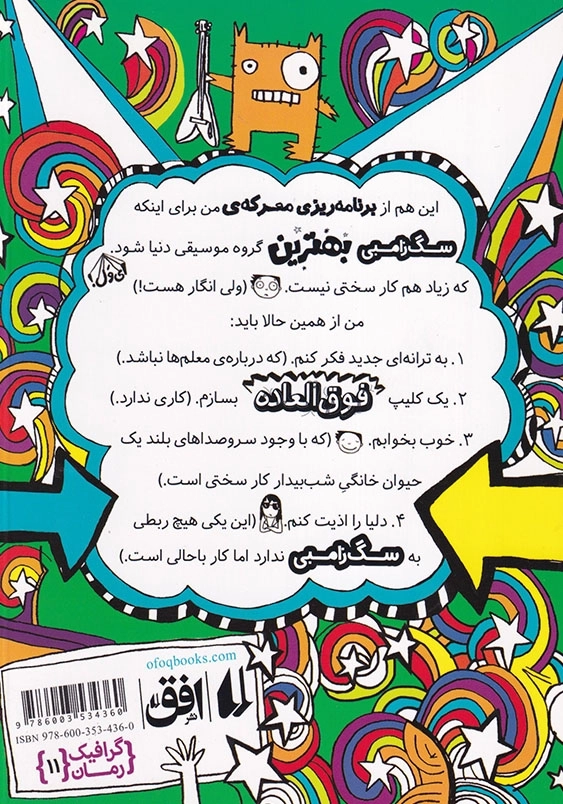 این هم از برنامه‌ریزی معرکه‌ی من برای اینکه
سگ زامبی بهترین گروه موسیقی دنیا شود.
ای وَل!
که زیاد هم کار سختی نیست. (ولی انگار هست!)
من از همین حالا باید:
۱. به ترانه‌ای جدید فکر کنم. (که درباره‌ی معلم‌ها نباشد.)
۲. یک کلیپ فوق‌العاده بسازم. (کاری ندارد.)
۳. خوب بخوابم. (که با وجود سروصداهای بلند یک
حیوان خانگیِ شب‌بیدار کار سختی است.)
۴. دلیا را اذیت کنم. (این یکی هیچ ربطی
به سگ زامبی ندارد اما کار باحالی است.)
ofoqbooks.com
نشر افق
9 786003 534360
ISBN 978-600-353-436-0
گرافیک
رمان
{۱۱}